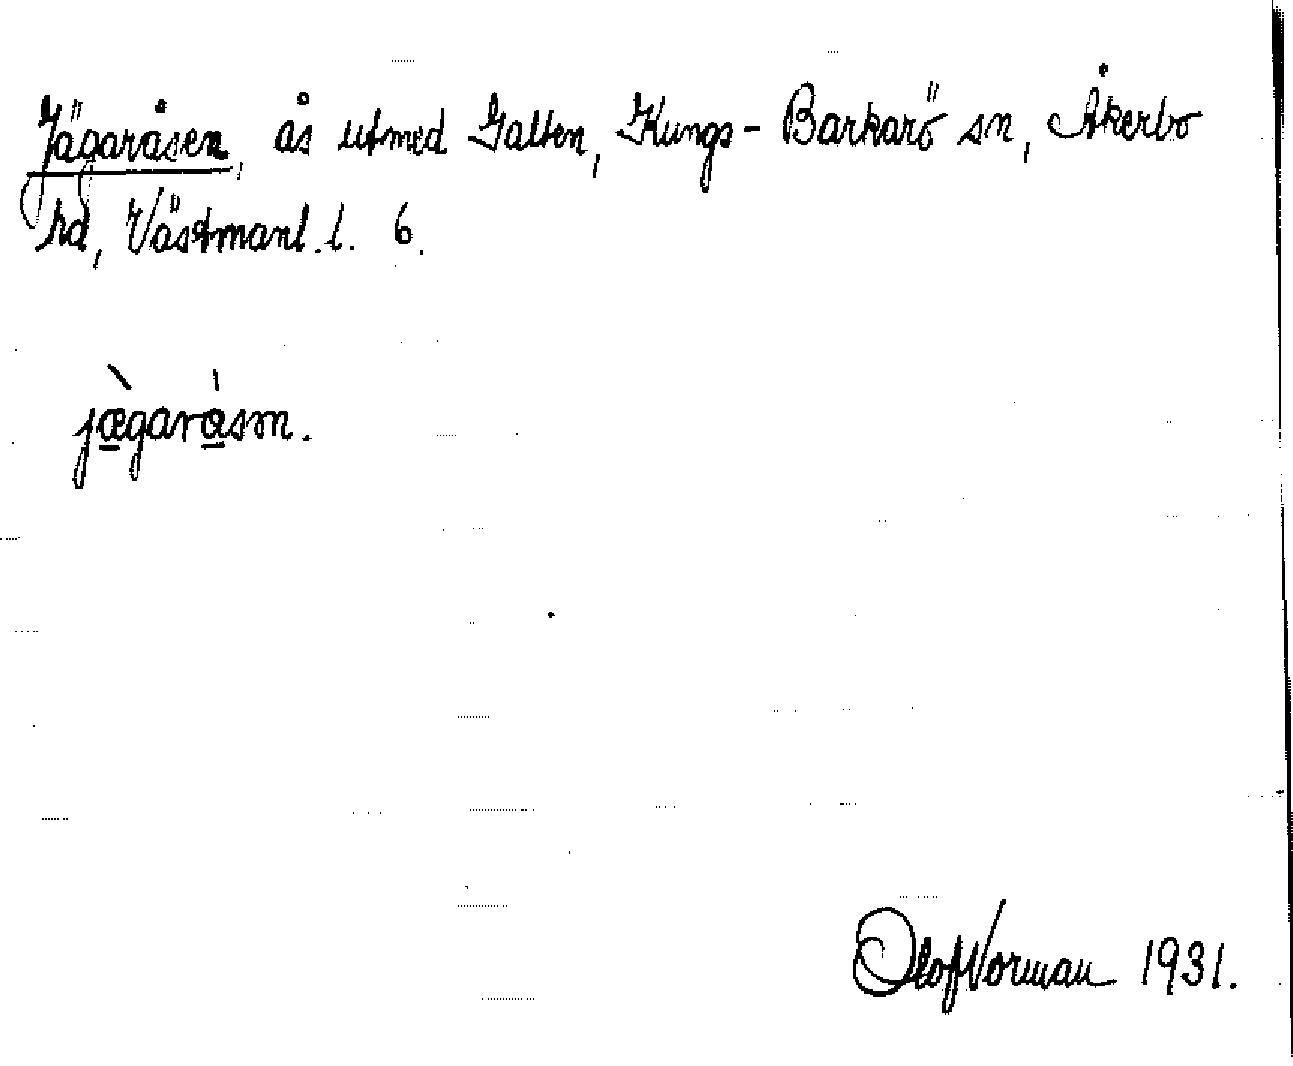 Jägaråsen, ås utmed Galten, Kungs-Barkarö sn, Åkerbo
hd, Västmanl. l. 6.
jæ̀garåsm.
Olof Norman 1931.